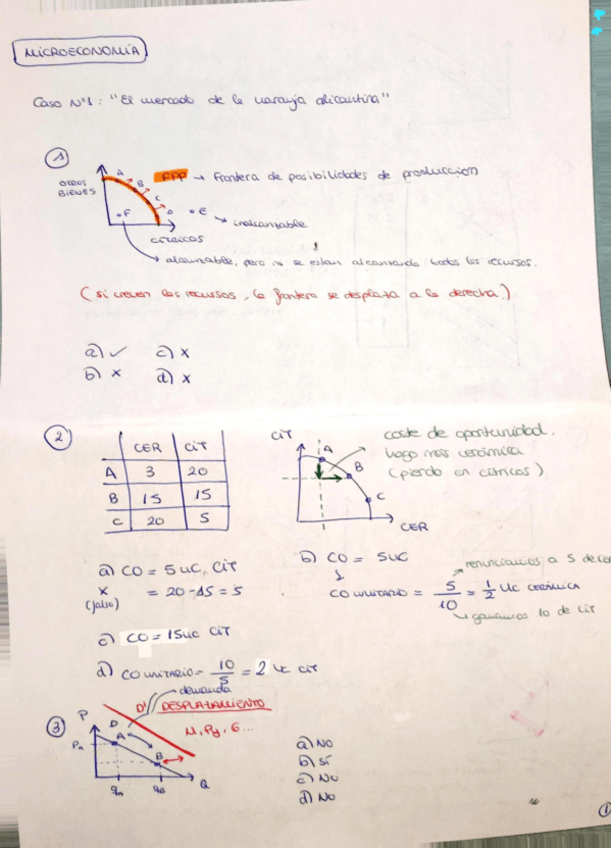 MICROECONOMÍA
Caso Nº1: "El mercado de la naranja alicantina"
1
OTROS BIENES
A
B
C
D
E
F
FPP → frontera de posibilidades de producción
→ inalcanzable
CÍTRICOS
→ alcanzable, pero no se están alcanzando todos los recursos.
(si crecen los recursos, la frontera se desplaza a la derecha.)
a) ✓ c) x
b) x d) x
2
CER CIT
A 3 20
B 15 15
C 20 5
CIT
A
B
C
CER
coste de oportunidad.
hago más cerámica
(pierdo en cítricos)
a) CO = 5 UC, CIT
x = 20-15 = 5
(falso)
b) CO = 5UC
CO UNITARIO = 5/10 = 1/2 UC CERÁMICA
→ renunciamos a 5 de cer
→ ganamos 10 de cit
c) CO = 15UC CIT
d) CO UNITARIO = 10/5 = 2 UC CIT
3
P
D
D'
demanda
DESPLAZAMIENTO
M, Py, G...
A
B
Q
a) NO
b) SÍ
c) NO
d) NO
1